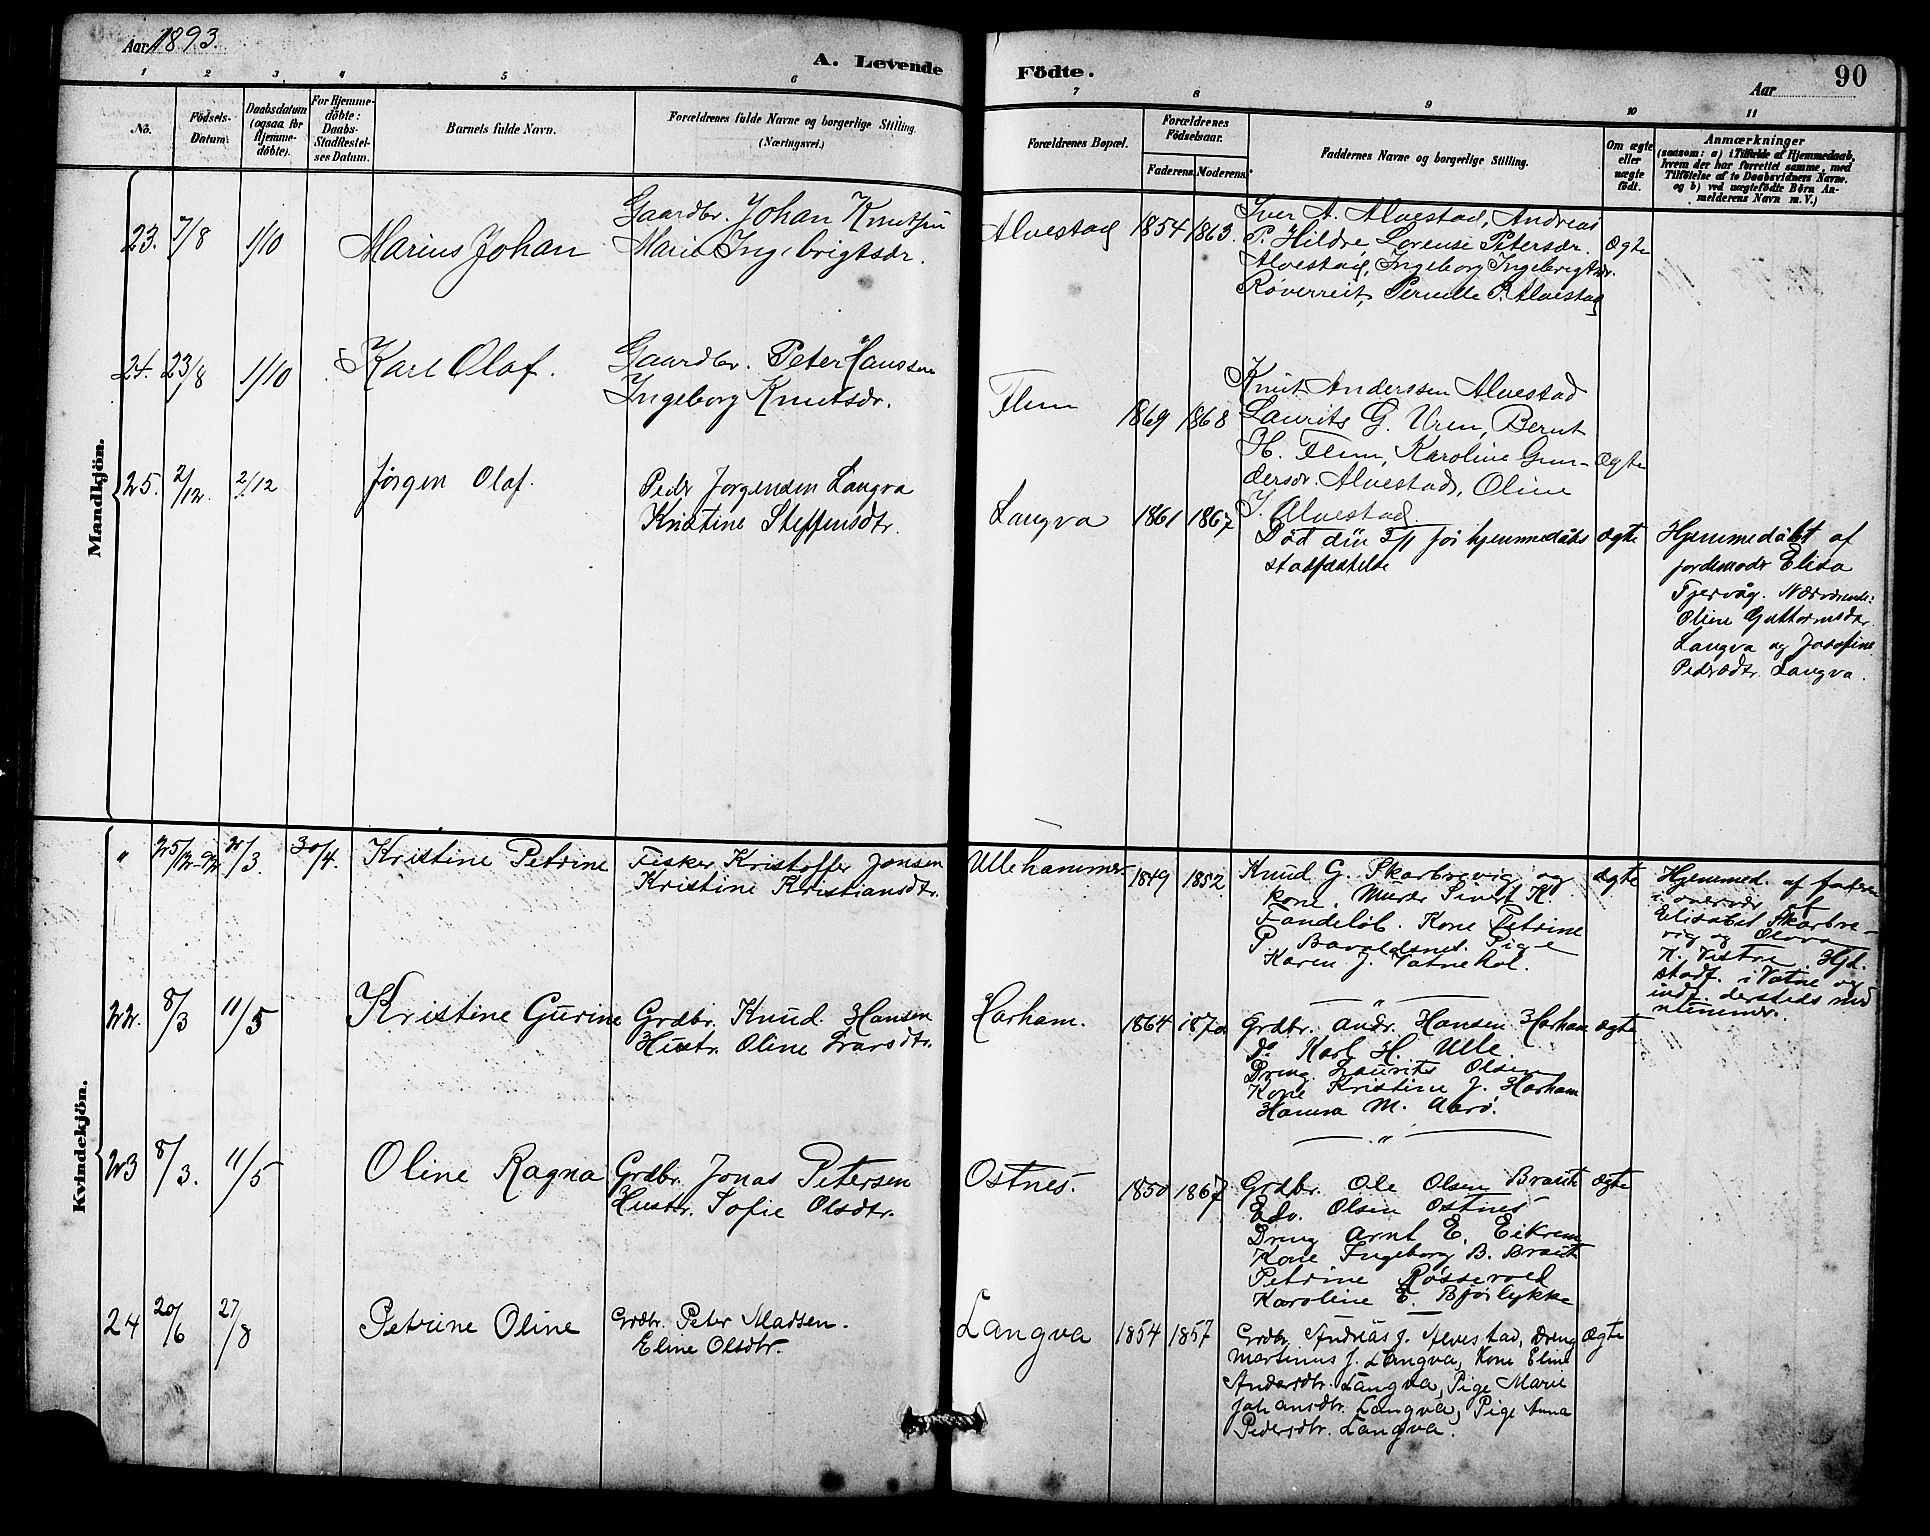 Aar 1893.
A. Levende
Födte.
Aar
90
1 2 3 4 5 6
7 8 9 10 11
No.
Födsels-
Datum.
Daabsdatum
(ogsaa for
Hjemme-
döbte).
For Hjemme-
döbte:
Daabs-
Stadfæstel-
ses Datum.
Barnets fulde Navn.
Forældrenes fulde Navne og borgerlige Stilling
(Næringsvei.)
Forældrenes Bopæl.
Forældrenes
Födselsaar.
Faderens. Moderens.
Faddernes Navne og borgerlige Stilling.
Om ægte
eller
uægte
födt.
Anmærkninger
(saasom: a) i Tilfælde af Hjemmedaab,
hvem der har forrettet samme, med
Tilföielse af to Daabsvidners Navne.
og b) ved uægtefödte Börn An-
melderens Navn m. V.)
Mandkjön.
23. 7/8 1/10 Marius Johan
Gaardbr. Johan Knutsen
Marie Ingebrigtsdr.
Alvestad 1854 1863.
Iver A. Alvestad, Andreas
P. Hildre, Lorense Petersdr.
Alvestad, Ingeborg Ingebrigtsdr.
Røverreit, Pernille P. Alvestad
Ægte
24. 23/8 1/10 Karl Olaf.
Gaardbr. Peter Hanssen
Ingeborg Knutsdr.
Flem 1869 1868
Knut Anderssen Alvestad
Laurits G. Uren, Bernt
H. Flem, Karoline Gun-
dersdr. Alvestad, Oline
I. Alvestad.
Ægte
25. 2/12. 2/12 Jørgen Olaf.
Peder Jørgensen Langva
Kristine Steffensdtr.
Langva 1861 1867
Død den 3/1 før hjemmedåbs
stadfæstelse
ægte
Hjemmedåbt af
jordemoder Elisa
Fjervåg. Nærværende:
Oline Guttormsdtr.
Langva og Josefine
Pedersdtr. Langva.
Kvindekjön.
" 25/12-92 2/3. 30/4. Kristine Petrine
Fisker Kristoffer Jonsen
Kristine Kristiansdtr.
Ullehammer 1849 1852
Knud G. Skarbrevig og
kone. Murer Sivert K.
Fandeløb. Kone Petrine
P. Bavoldsnes. Pige
Karen J. Vatnehol.
ægte
Hjemmed. af faderen
i overvær af
Elisabet Skarbre-
vig og Olava
K. Vestre. Hjd.
stadf. i Vatne og
indf. dersteds med
nummer.
22. 8/3 11/5 Kristine Gurine
Grdbr. Knud Hansen
Hustr. Oline Larsdtr.
Harham. 1864 1870
Grdbr. Andr. Hansen Harham
Do Karl H. Ulle.
Dreng Laurits Olsen
Kone Kristine J. Harham
Hanna M. Aarø.
ægte
23 8/3. 11/5 Oline Ragna
Grdbr. Jonas Petersen
Hustr. Sofie Olsdtr.
Ostnes. 1850 1867
Grdbr. Ole Olsen Brauste
Edv. Olsen Ostnes
Dreng Arnt E. Eikrem
Kone Ingeborg B. Braute
Petrine Røssevold
Karoline E. Bjørlykke
ægte
24 20/6 27/8 Petrine Oline
Grdbr. Peter Madsen.
Eline Olsdtr.
Langva 1854 1857
Grdbr. Andreas J. Alvestad, Dreng
Martinus J. Langva, Kone Eline
Andersdtr. Langva, Pige Marie
Johansdtr. Langva, Pige Anna
Pedersdtr. Langva.
Ægte